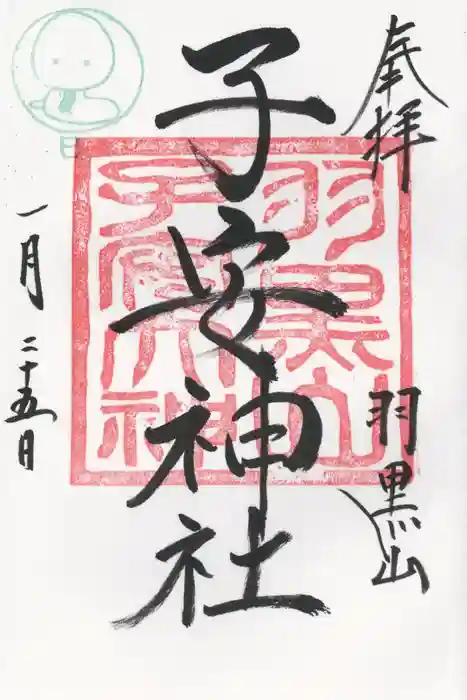 奉拝
羽黒山
子安神社
羽黒山
一月二十五日